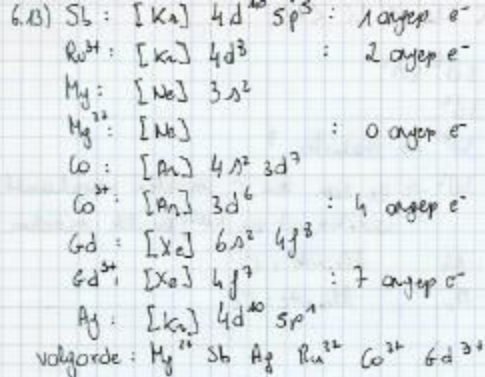 6.13) Sb : [Kr] 4d¹⁰ 5p⁵ : 1 ongep e⁻
Ru³⁺ : [Kr] 4d⁸ : 2 ongep e⁻
Mg : [Ne] 3s²
Mg²⁺ : [Ne] : 0 ongep e⁻
Co : [Ar] 4s² 3d⁷
Co³⁺ : [Ar] 3d⁶ : 4 ongep e⁻
Gd : [Xe] 6s² 4f⁸
Gd³⁺ : [Xe] 4f⁷ : 7 ongep e⁻
Ag : [Kr] 4d¹⁰ 5p¹
volgorde : Mg²⁺ Sb Ag Ru³⁺ Co³⁺ Gd³⁺